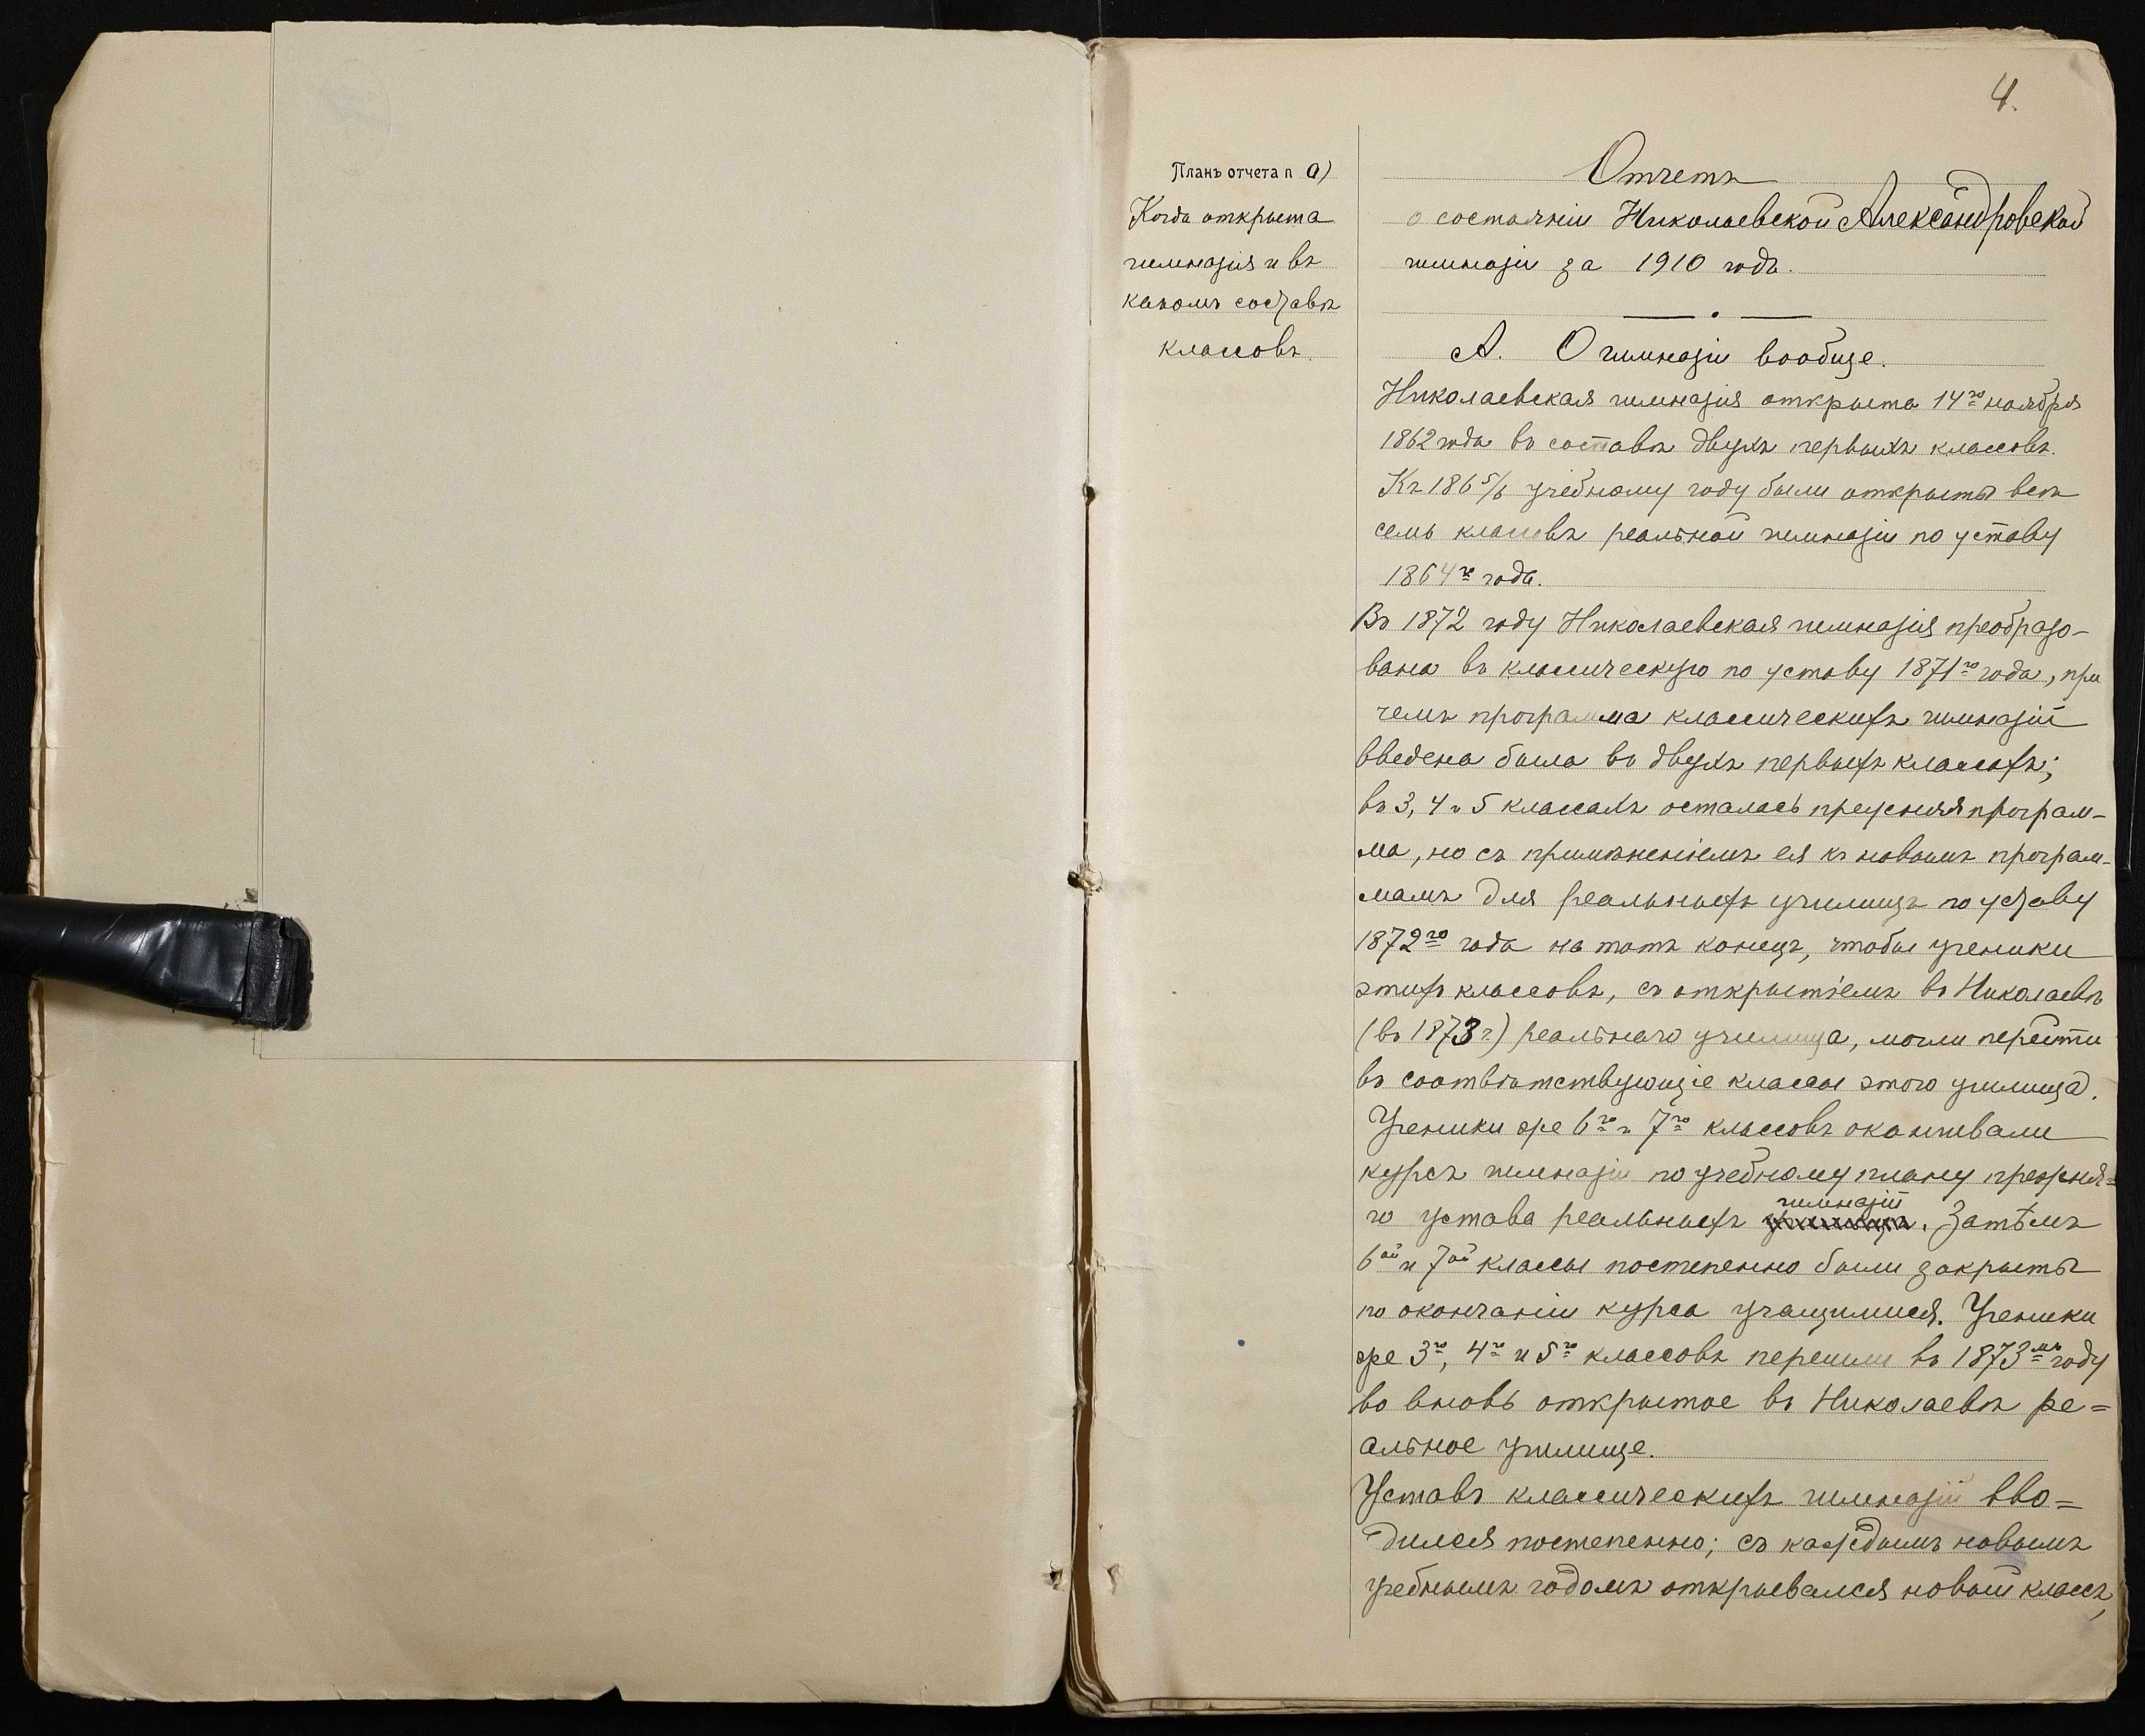 4.
Планъ отчета п а)
Когда открыта
гимназія и въ
какомъ составѣ
классовъ.
Отчетъ
о состояніи Николаевской Александровской
гимназіи за 1910 годъ.
А. О гимназіи вообще.
Николаевская гимназія открыта 14го ноября
1862 года въ составѣ двухъ первыхъ классовъ.
Къ 1865/6 учебному году были открыты всѣ
семь классовъ реальной гимназіи по уставу
1864го года.
Въ 1872 году Николаевская гимназія преобразо-
вана въ классическую по уставу 1871го года, при
чемъ программа классическихъ гимназій
введена была въ двухъ первыхъ классахъ;
въ 3, 4 и 5 классахъ осталась прежняя програм-
ма, но съ примѣненіемъ ея къ новымъ програм-
мамъ для реальныхъ училищъ по уставу
1872го года на тотъ конецъ, чтобы ученики
этихъ классовъ, съ открытіемъ въ Николаевѣ
(въ 1873 г.) реальнаго училища, могли перейти
въ соотвѣтствующіе классы этого училища.
Ученики же 6го и 7го классовъ оканчивали
курсъ гимназіи по учебному плану прежня=
го устава реальныхъ гимназій. Затѣмъ
6ой и 7ой классы постепенно были закрыты
по окончаніи курса учащимися. Ученики
же 3го, 4го и 5го классовъ перешли въ 1873мъ году
во вновь открытое въ Николаевѣ ре=
альное училище.
Уставъ классическихъ гимназій вво=
дился постепенно; съ каждымъ новымъ
учебнымъ годомъ открывался новый классъ,